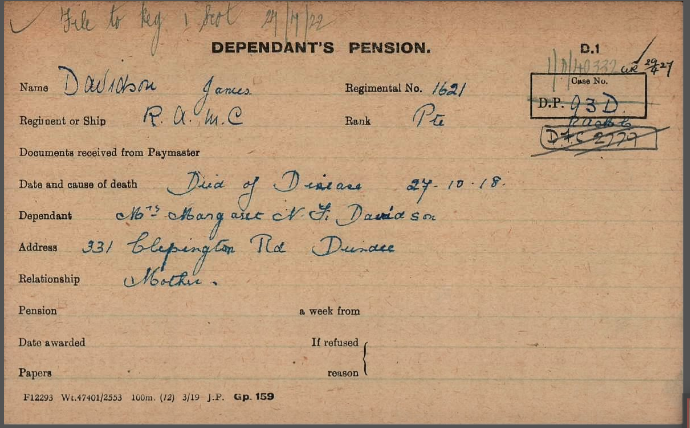 File to Reg. 1 Scot 29/7/22
DEPENDANT'S PENSION.
D.1
Name Davidson James Regimental No. 1621
Case No.
D.P. 93 D.
Regiment or Ship R. A. M. C Rank Pte
Documents received from Paymaster
Date and cause of death Died of Disease 27-10-18.
Dependant Mrs Margaret N. F. Davidson
Address 331 Clepington Rd Dundee
Relationship Mother.
Pension a week from
Date awarded If refused
Papers reason
F12293 Wt.47401/2553 100m. (12) 3/19 J.P. Gp. 159